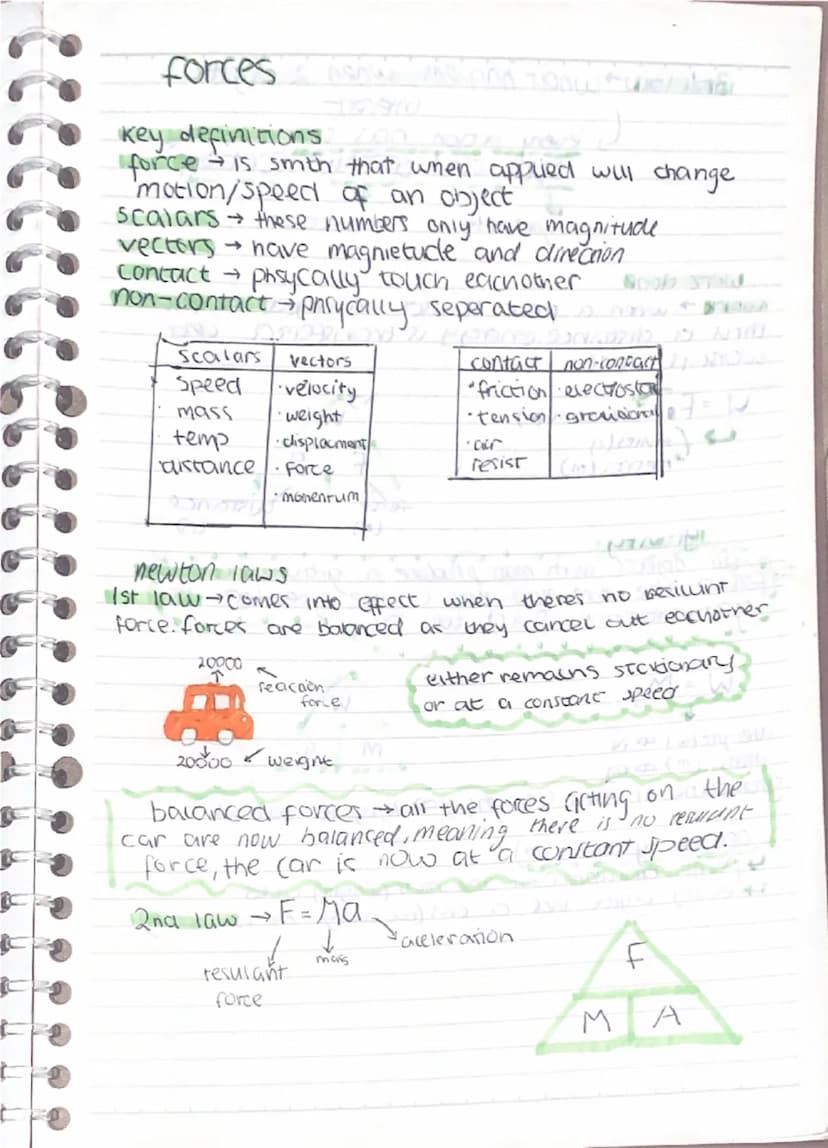 forces
Key definitions
force → is smth that when applied will change
motion/speed of an object
scalars → these numbers only have magnitude
vectors → have magnietude and direction
contact → phsycally touch eachother
non-contact → phsycally seperated
scalars vectors
speed · velocity
· mass · weight
· temp · displacment
distance · force
· momentum
contact non-contact
· friction
· tension
· air
resist
newton laws
1st law → comes into effect when theres no
force. forces are balanced as they cancel out eachother
20000
reaction
force
20000 weight
either remains stationary
or at a constant speed
balanced forces → all the forces acting on the
car are now balanced, meaning there is no resultant
force, the car is now at a constant speed.
2nd law → F = Ma
acceleration
mass
resultant
force
F
M A